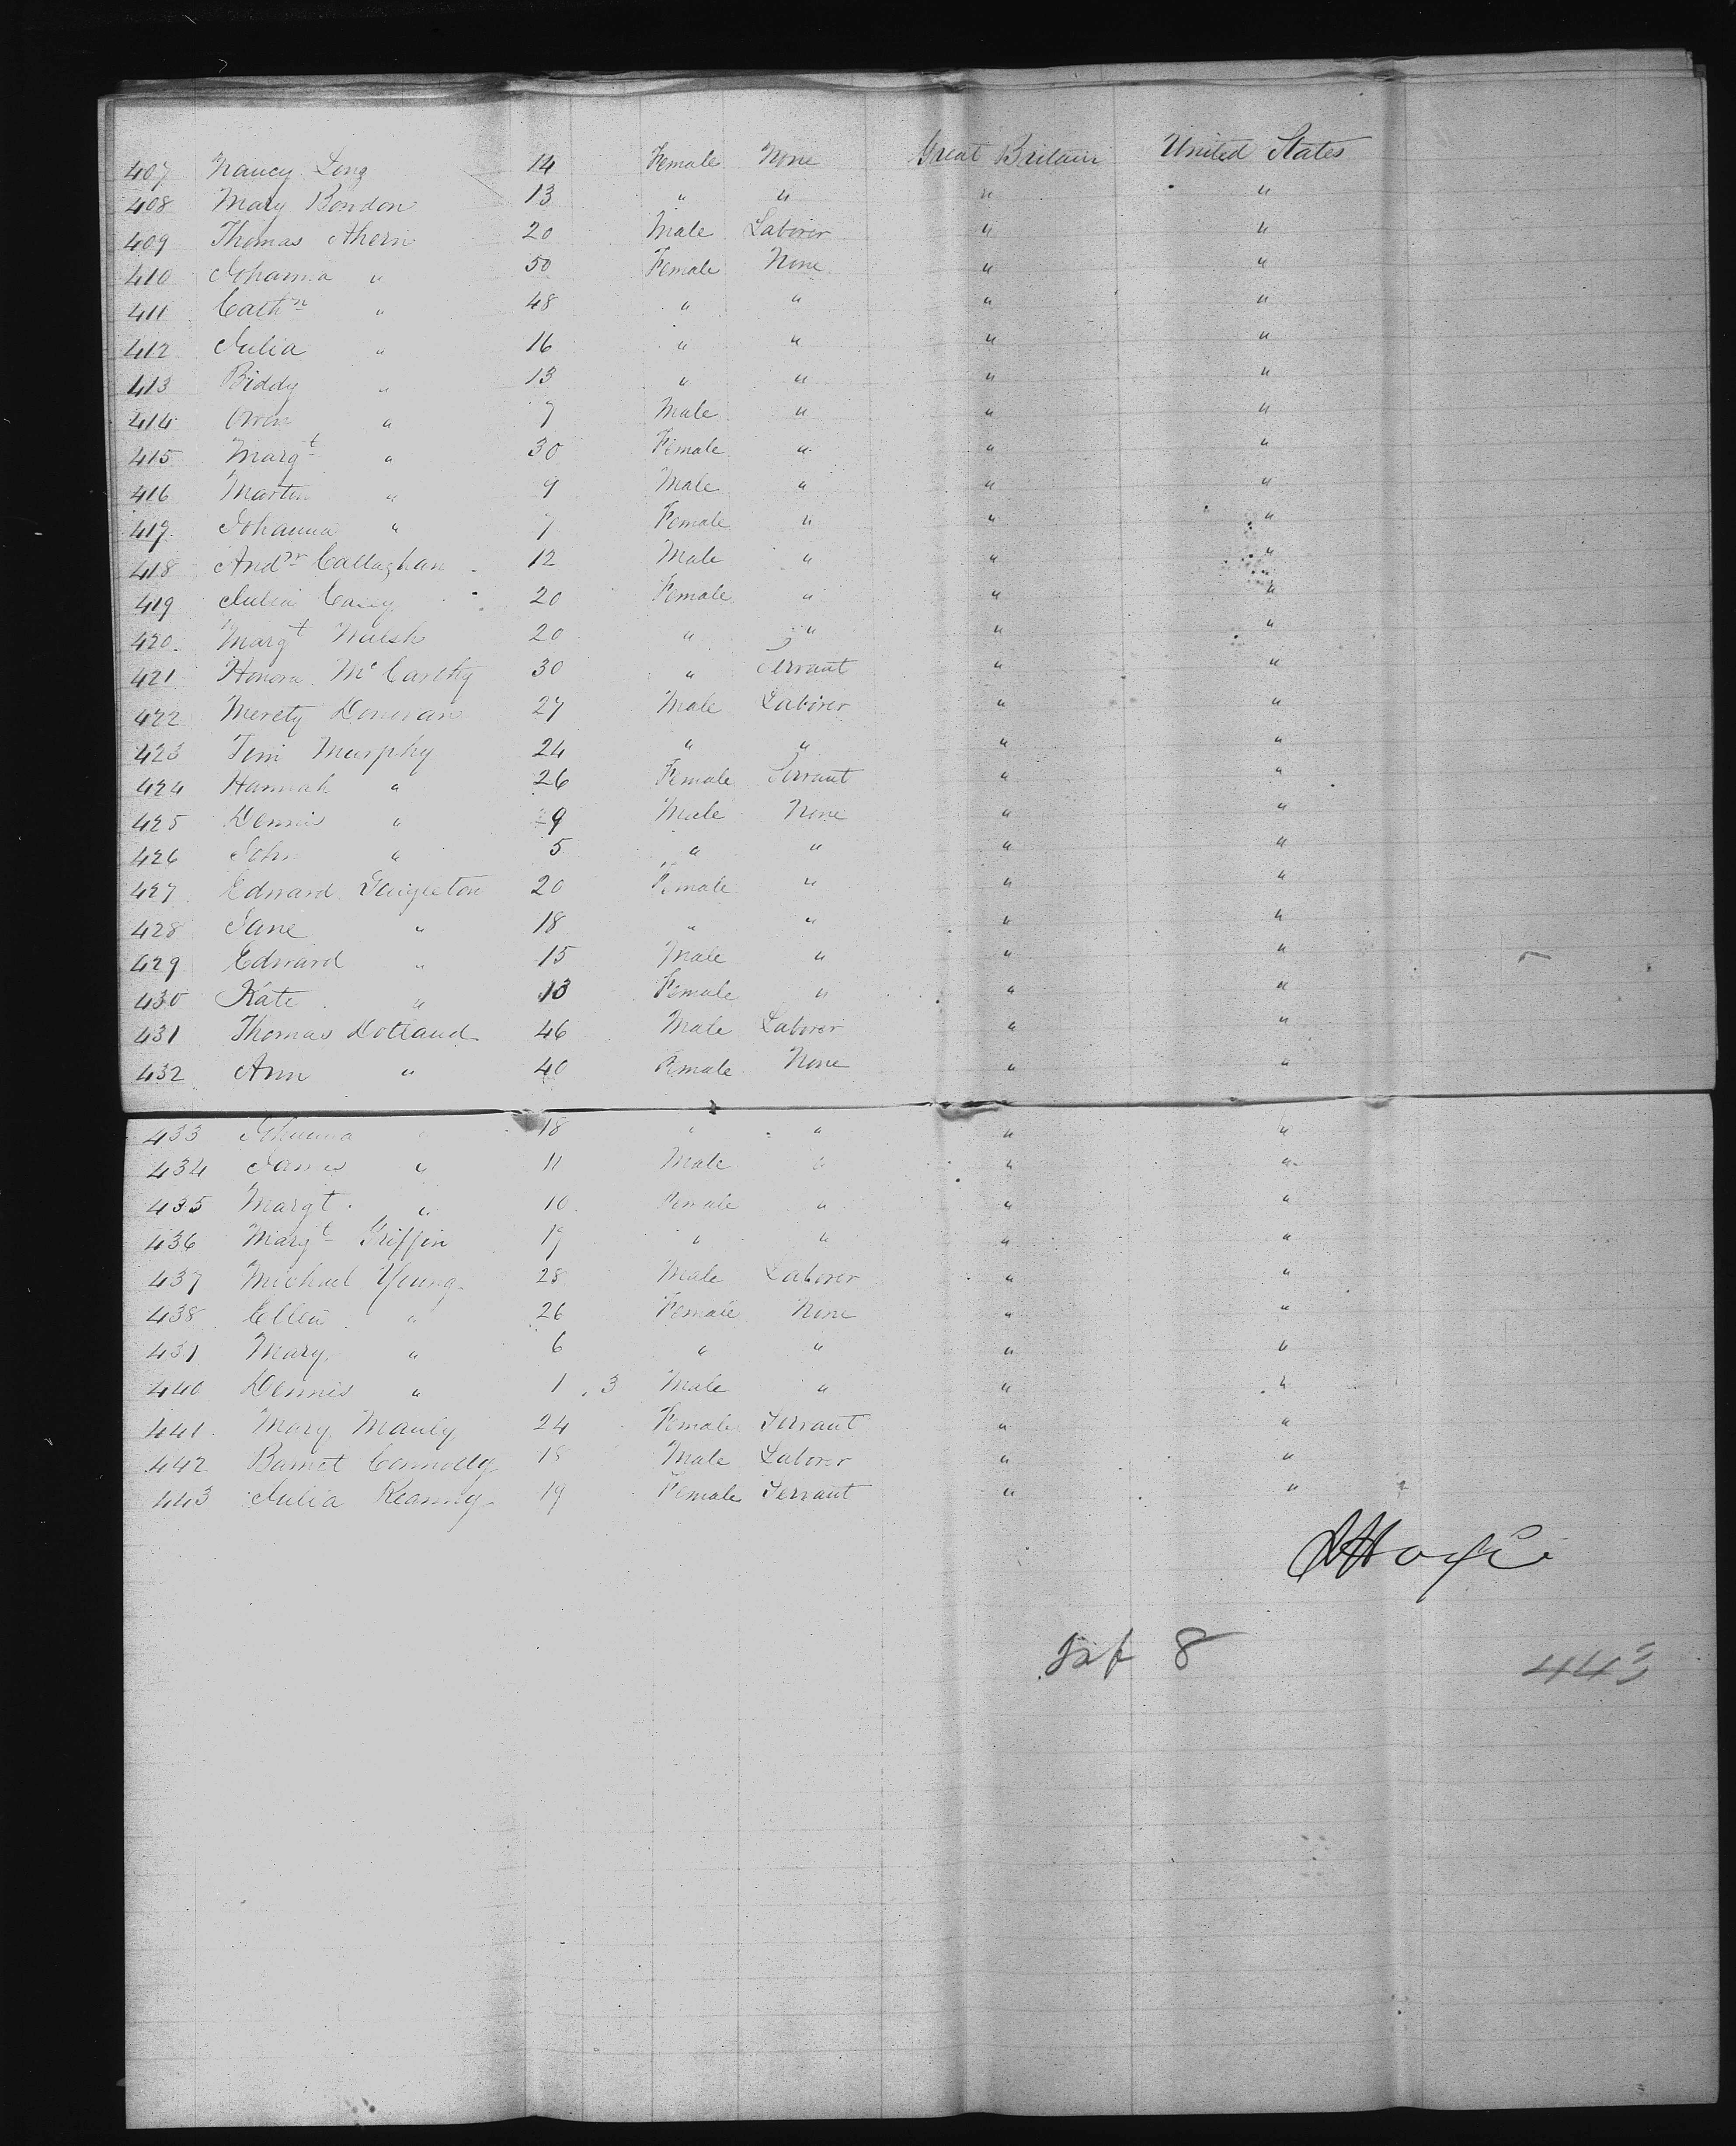 407 Nancy Long 14 Female None Great Britain United States
408 Mary Bondon 13 " " " "
409 Thomas Ahern 20 Male Laborer " "
410 Johanna " 50 Female None " "
411 Cathn " 48 " " " "
412 Julia " 16 " " " "
413 Biddy " 13 " " " "
414 Owen " 7 Male " " "
415 Margt " 30 Female " " "
416 Martin " 9 Male " " "
417 Johanna " 7 Female " " "
418 Andw Callaghan 12 Male " " "
419 Julia Casey 20 Female " " "
420. Margt Walsh 20 " " " "
421 Honora McCarthy 30 " Servant " "
422 Merety Donovan 27 Male Laborer " "
423 Tim Murphy 24 " " " "
424 Hannah " 26 Female Servant " "
425 Dennis " 9 Male None " "
426 John " 5 " " " "
427 Edward 20 Female " " "
428 Jane " 18 " " " "
429 Edward " 15 Male " " "
430 Kate " 13 Female " " "
431 Thomas Dolland 46 Male Laborer " "
432 Ann " 40 Female None " "
433 Johanna " 18 " " " "
434 James " 11 Male " " "
435 Margt. " 10 Female " " "
436 Margt Griffin 19 " " " "
437 Michael Young 28 Male Laborer " "
438 Ellen " 26 Female None " "
431 Mary " 6 " " " "
440 Dennis " 1 . 3 Male " " "
441. Mary Manly 24 Female Servant " "
442 Barnet Connolly 18 Male Laborer " "
443 Julia Keanny 19 Female Servant " "
8
443